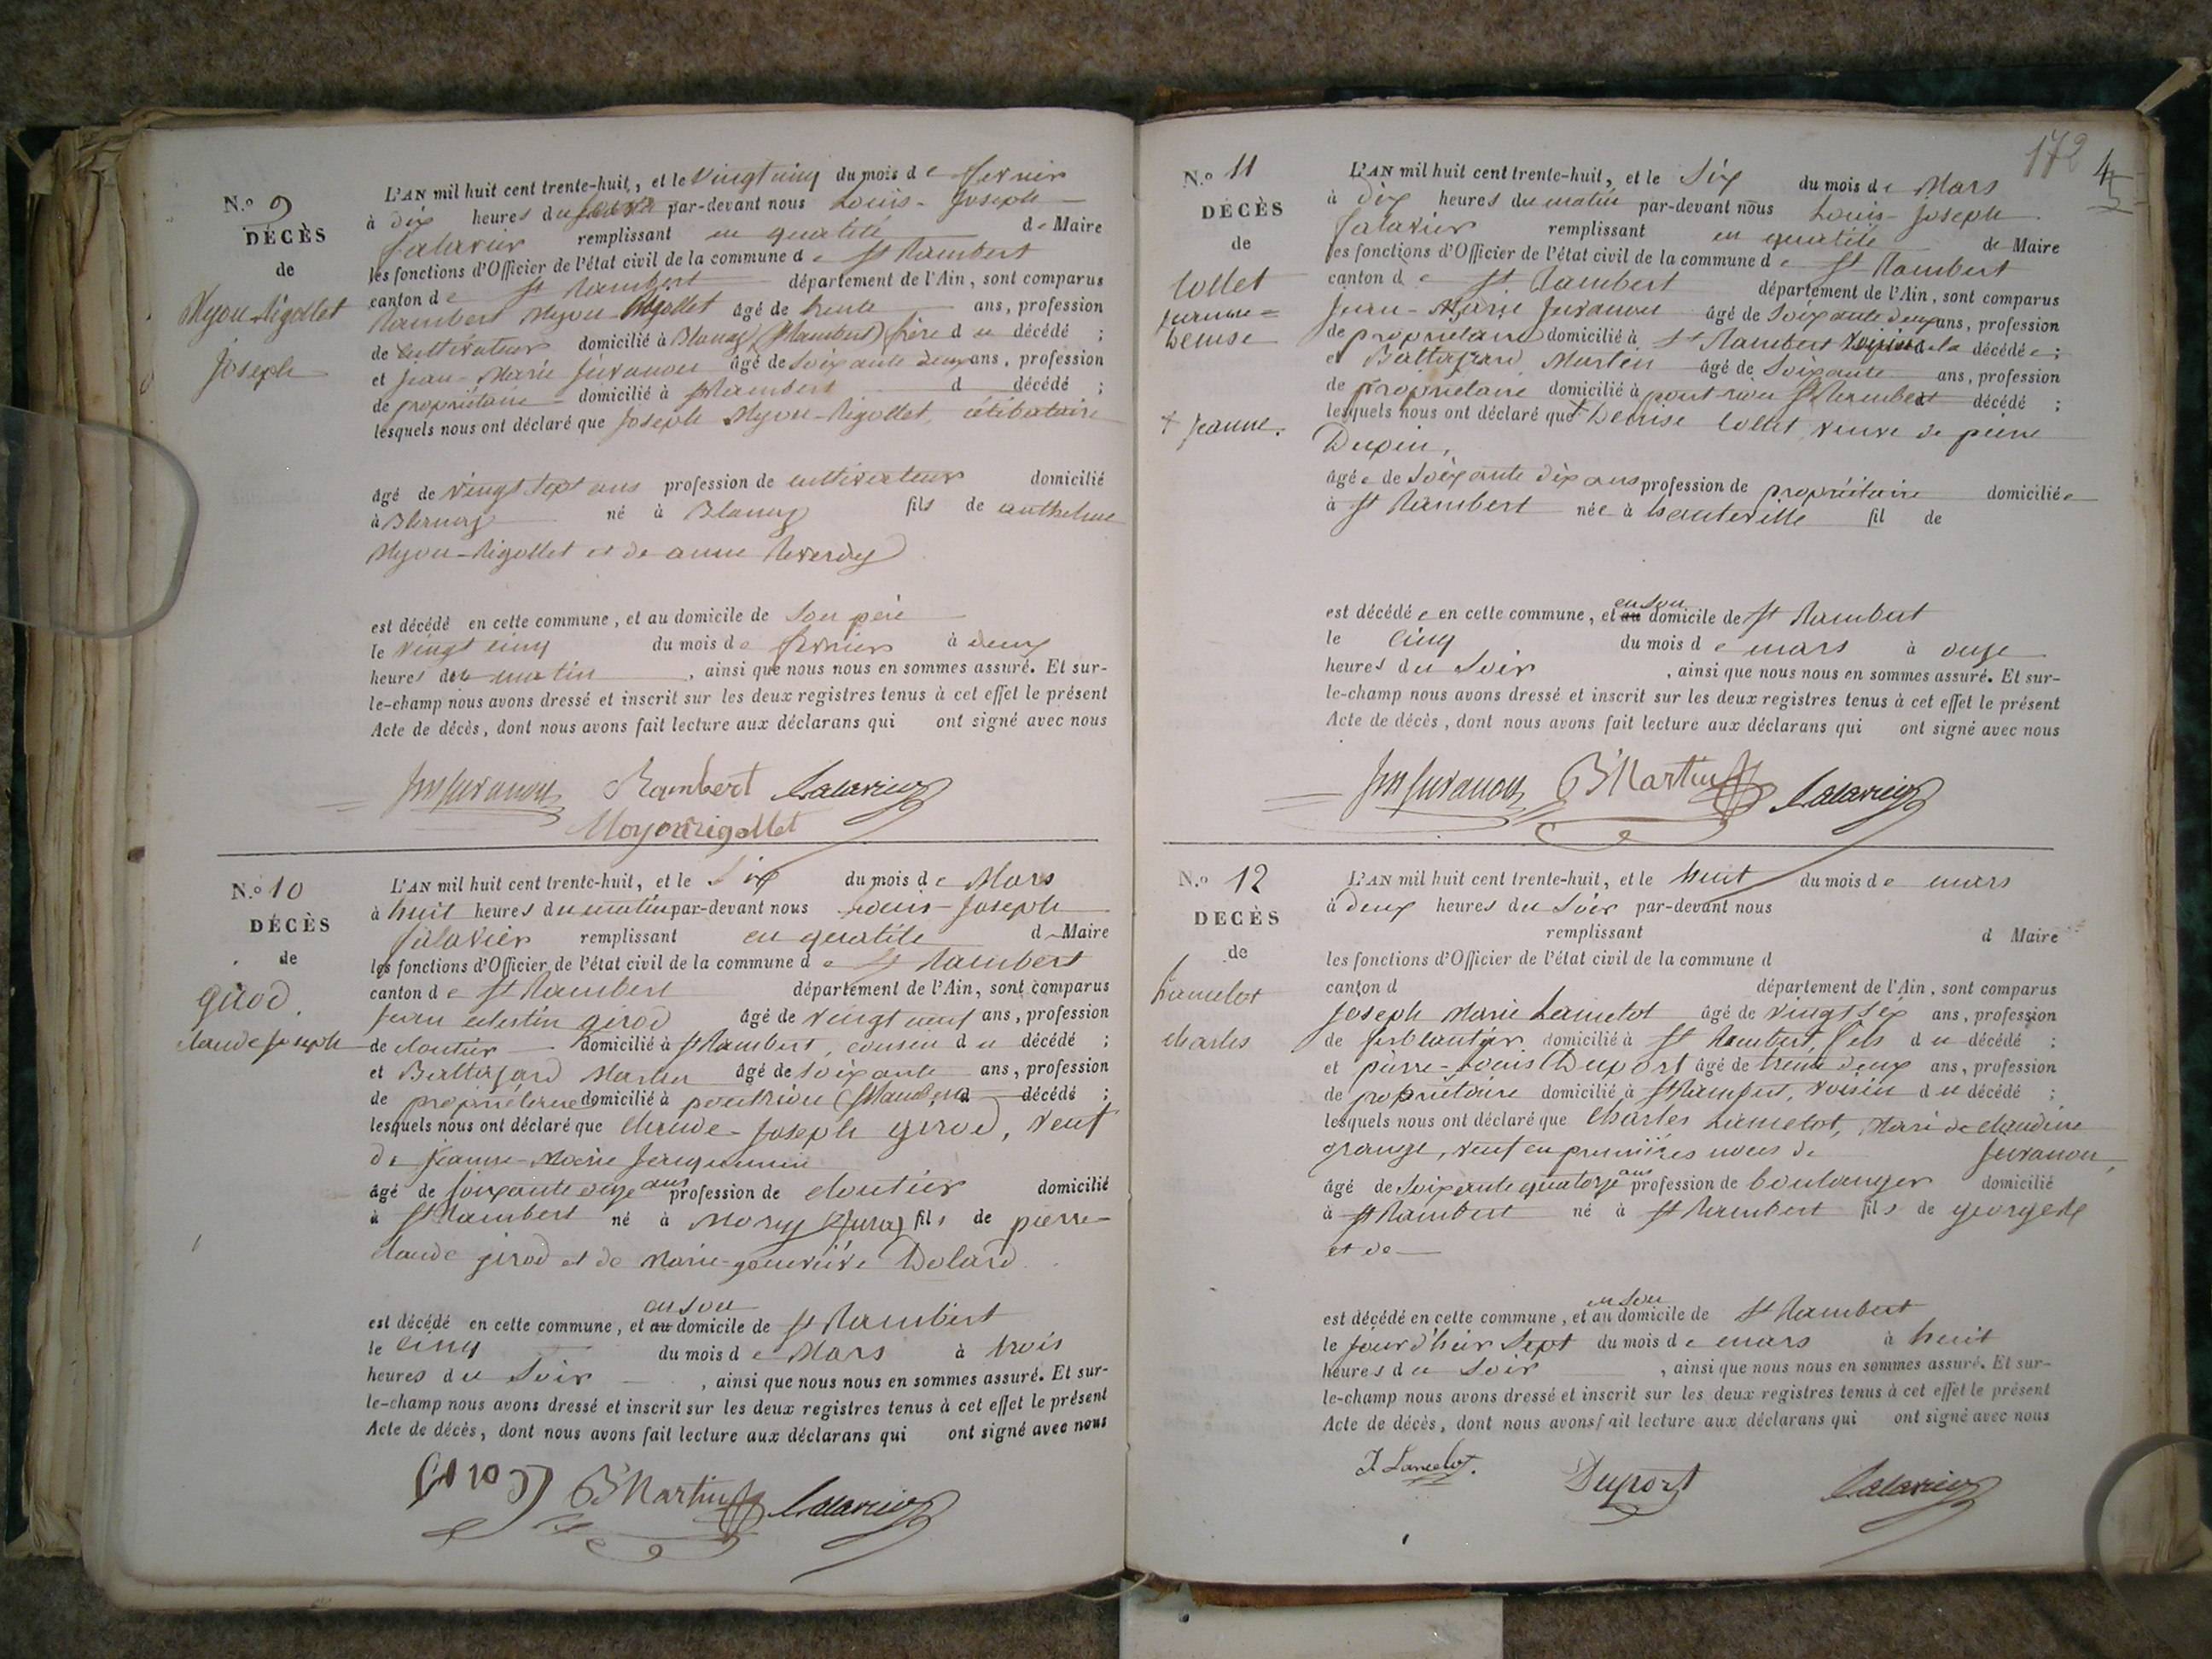 N.º 9
DÉCÈS
de
Myon-Rigollet
Joseph
L'AN mil huit cent trente-huit, et le vingt cinq du mois de fevrier
à dix heures du par-devant nous Louis-Joseph
Salavier remplissant en qualité de Maire
les fonctions d'Officier de l'état civil de la commune de St Rambert
canton de St Rambert département de l'Ain, sont comparus
Rambert Myon-Rigollet âgé de trente ans, profession
de cultivateur domicilié à Blanaz (St Rambert) frère du décédé ;
et Jean-Marie Juvanon âgé de soixante deux ans, profession
de propriétaire domicilié à St Rambert d décédé ;
lesquels nous ont déclaré que Joseph Myon-Rigollet, célibataire
âgé de vingt sept ans profession de cultivateur domicilié
à Blanaz né à Blanaz fils de anthelme
Myon-Rigollet et de anne Reverdy
est décédé en cette commune, et au domicile de son père
le vingt cinq du mois de fevrier à deux
heures du matin, ainsi que nous nous en sommes assuré. Et sur-
le-champ nous avons dressé et inscrit sur les deux registres tenus à cet effet le présent
Acte de décès, dont nous avons fait lecture aux déclarans qui ont signé avec nous
Jm Juvanon Rambert Salavier
Moyonrigollet
N.º 10
DÉCÈS
de
girod
claude joseph
L'AN mil huit cent trente-huit, et le Six du mois de Mars
à huit heures du matin par-devant nous Louis-Joseph
Salavier remplissant en qualité de Maire
les fonctions d'Officier de l'état civil de la commune de St Rambert
canton de St Rambert département de l'Ain, sont comparus
jean celestin girod âgé de vingt neuf ans, profession
de cloutier domicilié à St Rambert, cousin du décédé ;
et Baltazard Martin âgé de soixante ans, profession
de propriétaire domicilié à pontrieu (St Rambert) d décédé ;
lesquels nous ont déclaré que Claude-Joseph girod, veuf
de jeanne-Marie Jacquemin
âgé de soixante onze ans profession de cloutier domicilié
à St Rambert né à Morez (Jura) fils de pierre-
claude girod et de Marie-genevière Dolard.
en son
est décédé en cette commune, et au domicile de St Rambert
le cinq du mois de Mars à trois
heures du Soir, ainsi que nous nous en sommes assuré. Et sur-
le-champ nous avons dressé et inscrit sur les deux registres tenus à cet effet le présent
Acte de décès, dont nous avons fait lecture aux déclarans qui ont signé avec nous
girod B Martin Salavier
172
N.º 11
DÉCÈS
de
Collet
jeanne=
Denise
+ jeanne.
L'AN mil huit cent trente-huit, et le Six du mois de Mars
à dix heures du matin par-devant nous Louis-Joseph
Salavier remplissant en qualité de Maire
les fonctions d'Officier de l'état civil de la commune de St Rambert
canton de St Rambert département de l'Ain, sont comparus
Jean-Marie Juvanon âgé de Soixante deux ans, profession
de propriétaire domicilié à St Rambert voisin de la décédée ;
et Baltazard Martin âgé de Soixante ans, profession
de propriétaire domicilié à pont-rieu St Rambert décédé ;
lesquels nous ont déclaré que + Denise Collet, veuve de pierre
Dupin,
âgée de Soixante dix ans profession de propriétaire domiciliée
à St Rambert née à hauteville fil de
en son
est décédée en cette commune, et au domicile de St Rambert
le cinq du mois de mars à onze
heures du Soir, ainsi que nous nous en sommes assuré. Et sur-
le-champ nous avons dressé et inscrit sur les deux registres tenus à cet effet le présent
Acte de décès, dont nous avons fait lecture aux déclarans qui ont signé avec nous
Jm Juvanon B Martin Salavier
N.º 12
DÉCÈS
de
Lancelot
charles
L'AN mil huit cent trente-huit, et le huit du mois de mars
à deux heures du Soir par-devant nous
remplissant d Maire
les fonctions d'Officier de l'état civil de la commune d
canton d département de l'Ain, sont comparus
Joseph Marie Lancelot âgé de vingt six ans, profession
de ferblantier domicilié à St Rambert, fils du décédé ;
et pierre-Louis Duport âgé de trente deux ans, profession
de propriétaire domicilié à St Rambert, voisin du décédé ;
lesquels nous ont déclaré que Charles Lancelot, Mari de claudine
grange, veuf en premières noces de Juvanon,
âgé de Soixante quatorze ans profession de boulanger domicilié
à St Rambert né à St Rambert fils de georges
et de
en son
est décédé en cette commune, et au domicile de St Rambert
le jour d'hier Sept du mois de mars à huit
heures du Soir, ainsi que nous nous en sommes assuré. Et sur-
le-champ nous avons dressé et inscrit sur les deux registres tenus à cet effet le présent
Acte de décès, dont nous avons fait lecture aux déclarans qui ont signé avec nous
J Lancelot. Duport Salavier